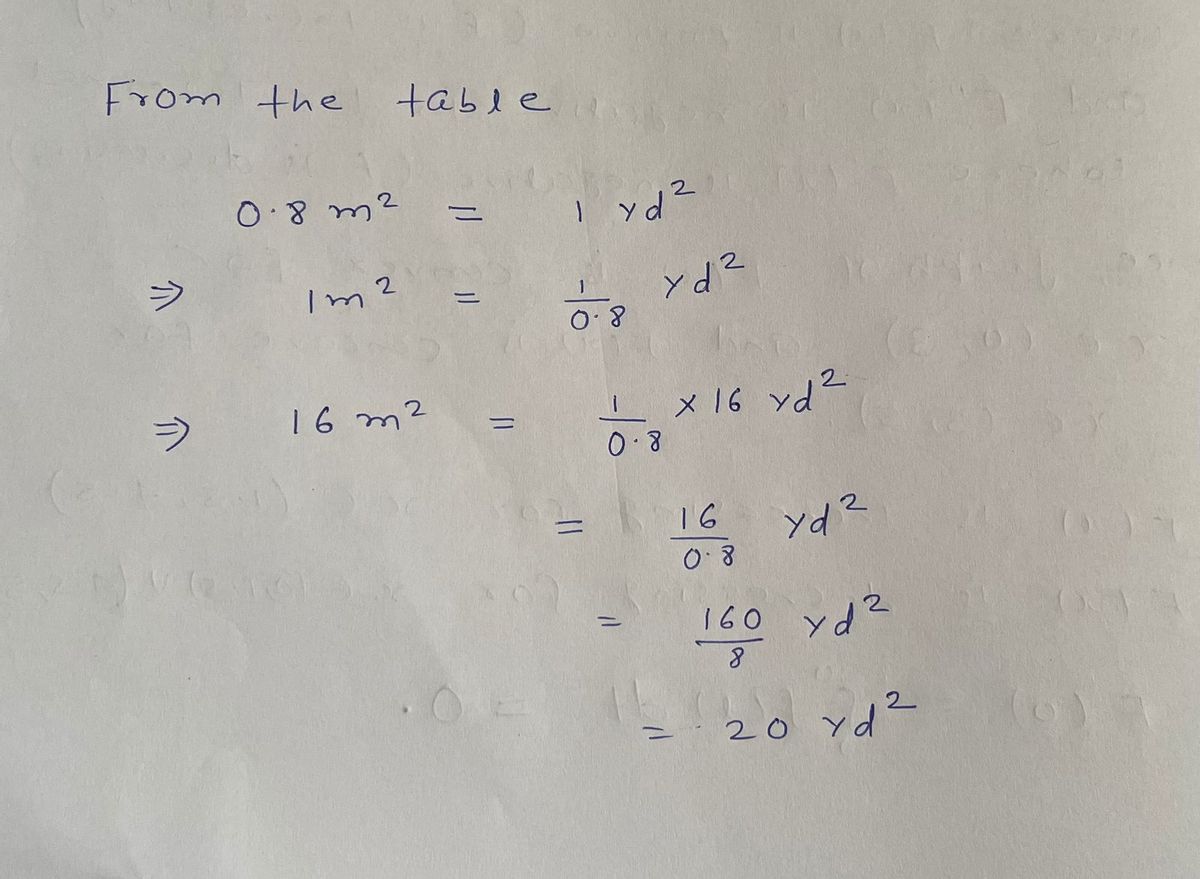 From the table
0.8 m² = 1 yd²
⇒ 1m² = 1/0.8 yd²
⇒ 16 m² = 1/0.8 × 16 yd²
= 16/0.8 yd²
= 160/8 yd²
= 20 yd²